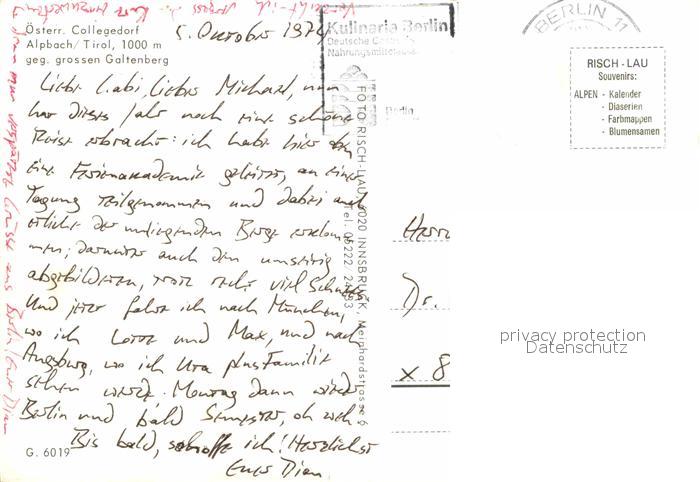 Österr. Collegedorf
Alpbach/Tirol, 1000 m
geg. grossen Galtenberg
5. Oktober 1974
Liebe Gabi, lieber Michael, nun
hat dieses Jahr noch eine schöne
Reise gebracht: ich habe hier
eine Ferienakademie geleitet, an einer
Tagung teilgenommen und dabei auch
etliche der umliegenden Berge
darunter auch den umseitig
abgebildeten, trotz sehr viel Schnee.
Und jetzt fahre ich nach München,
wo ich Lotte und Max, und nach
Augsburg, wo ich Uta plus Familie
sehen werde. Montag dann wieder
Berlin und bald Semester, oh weh
Bis bald, hoffe ich! Herzlichst
Euer Dian
G. 6019
nur verspätete Grüße aus Berlin Euer Dian
Kulinaria Berlin
Deutsche
Nahrungsmittel
Berlin
FOTO RISCH-LAU, 6020 INNSBRUCK, Meinhardstrasse
Tel. 05222
BERLIN 11
RISCH - LAU
Souvenirs:
ALPEN - Kalender
- Diaserien
- Farbmappen
- Blumensamen
Herrn
Dr.
x 8
privacy protection
Datenschutz